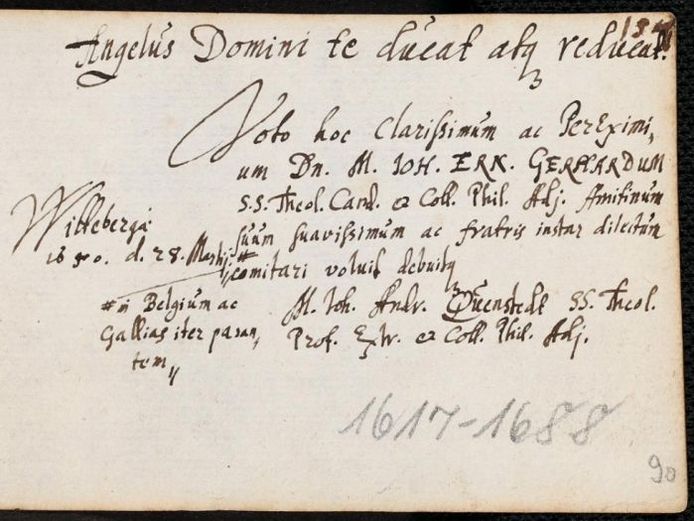 Angelus Domini te ducat atq3 reducat.
Voto hoc Clarissimum ac PerEximi„
um Dn. M. IOH. ERN. GERHARDUM
SS. Theol. Cand. et Coll. Phil. Adj. Amitinum
suum suavissimum ac fratris instar dilectum
# comitari voluit debuitq3
M. Joh. Andr. Quenstedt SS. Theol.
Prof. Extr. et Coll. Phil. Adj.
Wittebergæ
1650. d. 28. Martij.
# in Belgium ac
Gallias iter paran„
tem„
1617-1688
90